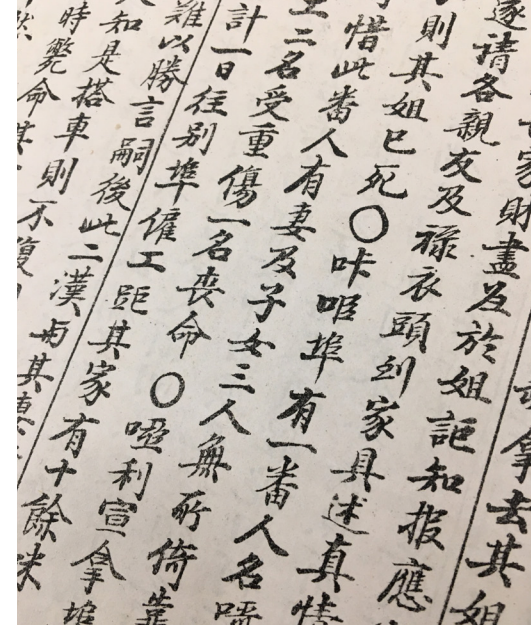 拿去其姐
家財盡及於姐詎知報應
遂請各親友及祿衣頭到家具述真情
則其姐已死〇咔埠有一番人名
惜此番人有妻及子女三人無所倚靠
二名受重傷一名喪命〇啞利宣拿埠
計一日往別埠僱工距其家有十餘咪
難以勝言嗣後此二漢與其
知是搭車則不復
時斃命其